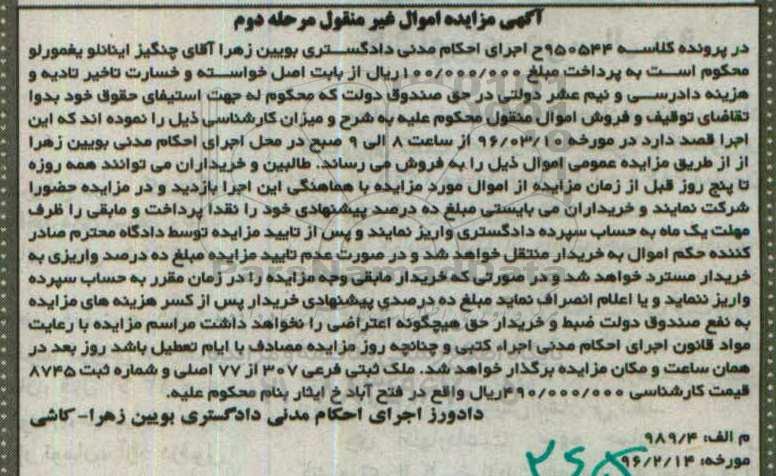 آگهی مزایده اموال غیر منقول مرحله دوم
در پرونده کلاسه ۹۵۰۵۴۴ح اجرای احکام مدنی دادگستری بویین زهرا آقای چنگیز اینانلو یغمورلو
محکوم است به پرداخت مبلغ ۱۰۰/۰۰۰/۰۰۰ریال از بابت اصل خواسته و خسارت تاخیر تادیه و
هزینه دادرسی و نیم عشر دولتی در حق صندوق دولت که محکوم له جهت استیفای حقوق خود بدوا
تقاضای توقیف و فروش اموال منقول محکوم علیه به شرح و میزان کارشناسی ذیل را نموده اند که این
اجرا قصد دارد در مورخه ۹۶/۰۳/۱۰ از ساعت ۸ الی ۹ صبح در محل اجرای احکام مدنی بویین زهرا
از از طریق مزایده عمومی اموال ذیل را به فروش می رساند. طالبین و خریداران می توانند همه روزه
تا پنج روز قبل از زمان مزایده از اموال مورد مزایده با هماهنگی این اجرا بازدید و در مزایده حضورا
شرکت نمایند و خریداران می بایستی مبلغ ده درصد پیشنهادی خود را نقدا پرداخت و مابقی را ظرف
مهلت یک ماه به حساب سپرده دادگستری واریز نمایند و پس از تایید مزایده توسط دادگاه محترم صادر
کننده حکم اموال به خریدار منتقل خواهد شد و در صورت عدم تایید مزایده مبلغ ده درصد واریزی به
خریدار مسترد خواهد شد و در صورتی که خریدار مابقی وجه مزایده را در زمان مقرر به حساب سپرده
واریز ننماید و یا اعلام انصراف نماید مبلغ ده درصدی پیشنهادی خریدار پس از کسر هزینه های مزایده
به نفع صندوق دولت ضبط و خریدار حق هیچگونه اعتراضی را نخواهد داشت مراسم مزایده با رعایت
مواد قانون اجرای احکام مدنی اجراء کتبی و چنانچه روز مزایده مصادف با ایام تعطیل باشد روز بعد در
همان ساعت و مکان مزایده برگذار خواهد شد. ملک ثبتی فرعی ۳۰۷ از ۷۷ اصلی و شماره ثبت ۸۷۴۵
قیمت کارشناسی ۴۹۰/۰۰۰/۰۰۰ریال واقع در فتح آباد خ ایثار بنام محکوم علیه.
دادورز اجرای احکام مدنی دادگستری بویین زهرا-کاشی
م الف: ۹۸۹/۴
مورخه: ۹۶/۲/۱۴
ParsNamadData